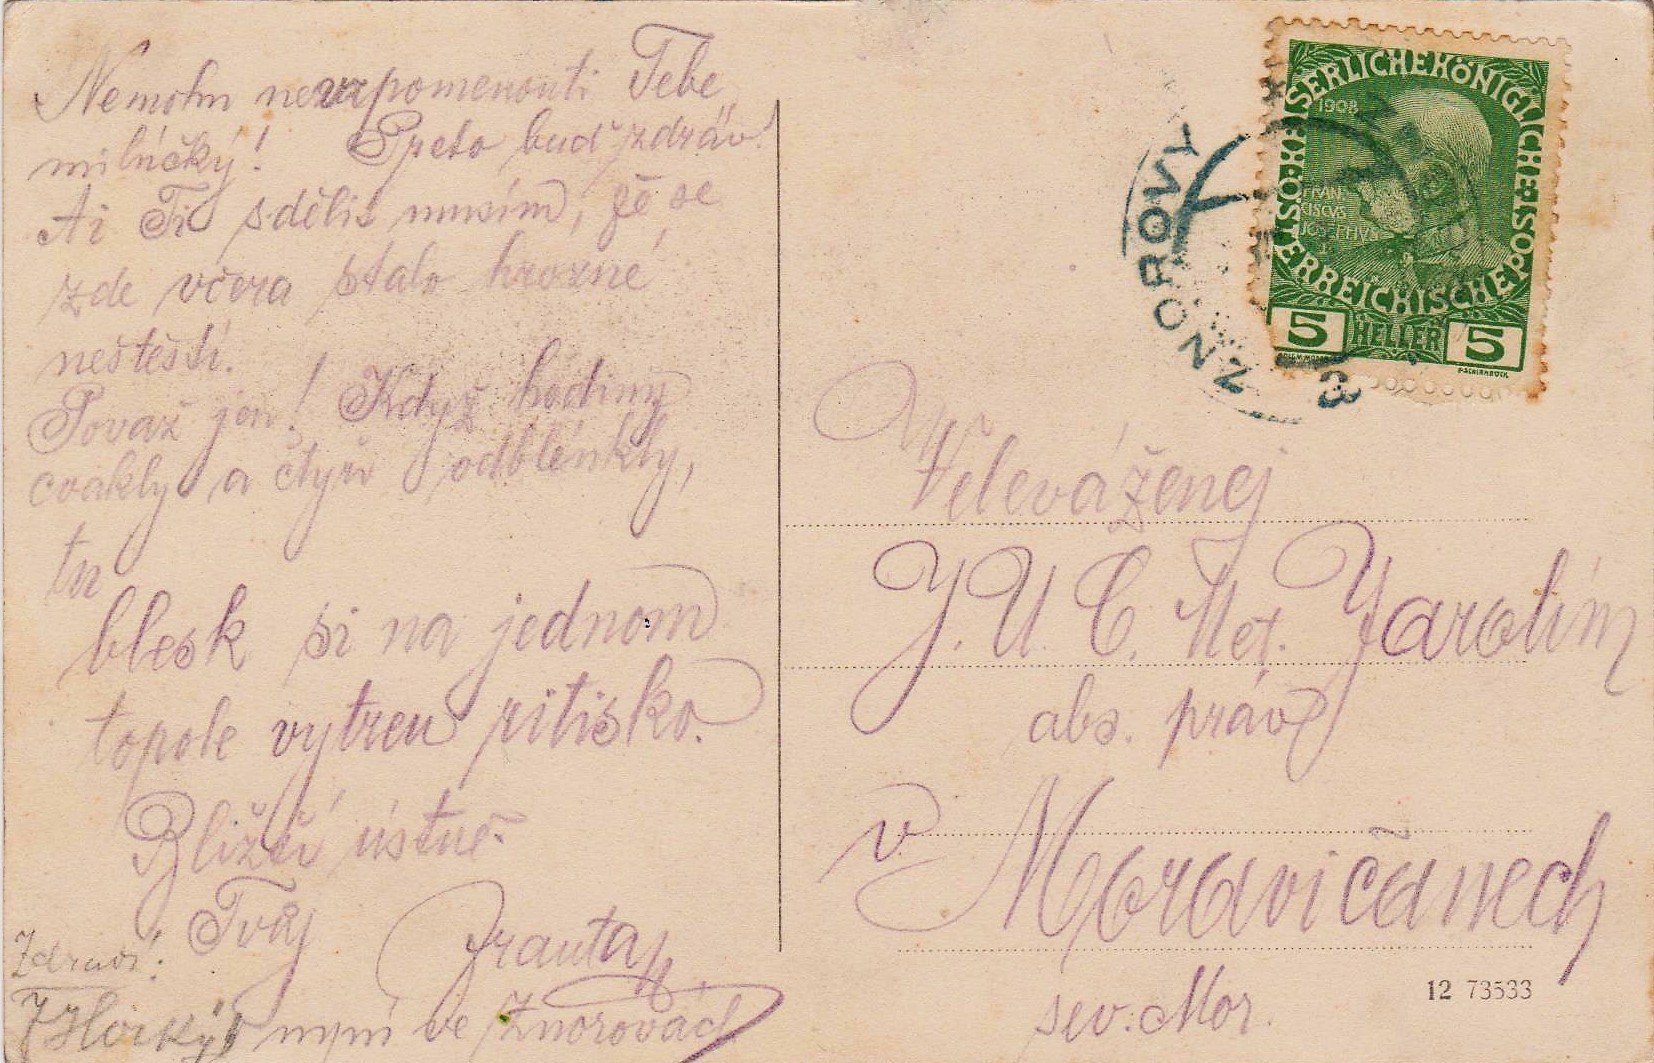 Nemohu nevzpomenouti Tebe
milúčký! Preto buď zdráv!
Ai Ti sdělit musím, že se
zde včera stalo hrozné
neštěstí.
Považ jen! Když hodiny
cvakly a čtyři odblénkly,
tu
blesk si na jednom
topole vytreu ritisko.
Bližší ústně.
Tvůj Frantaj
Zdraví:
nyní ve Znorovách
ZNOROVY
KAISERLICHEKÖNIGLICHE
ÖSTERREICHISCHE POST
1908
FRAN
CISCVS
JOSEPHVS
I
5 HELLER 5
Veleváženej
J.U.C. Met. Jarolím
abs. práv
v
Moravičanech
sev. Mor.
12 73533